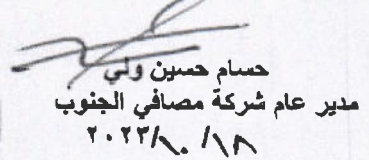 حسام حسين ولي
مدير عام شركة مصافي الجنوب
٢٠٢٣/١٠/١٨